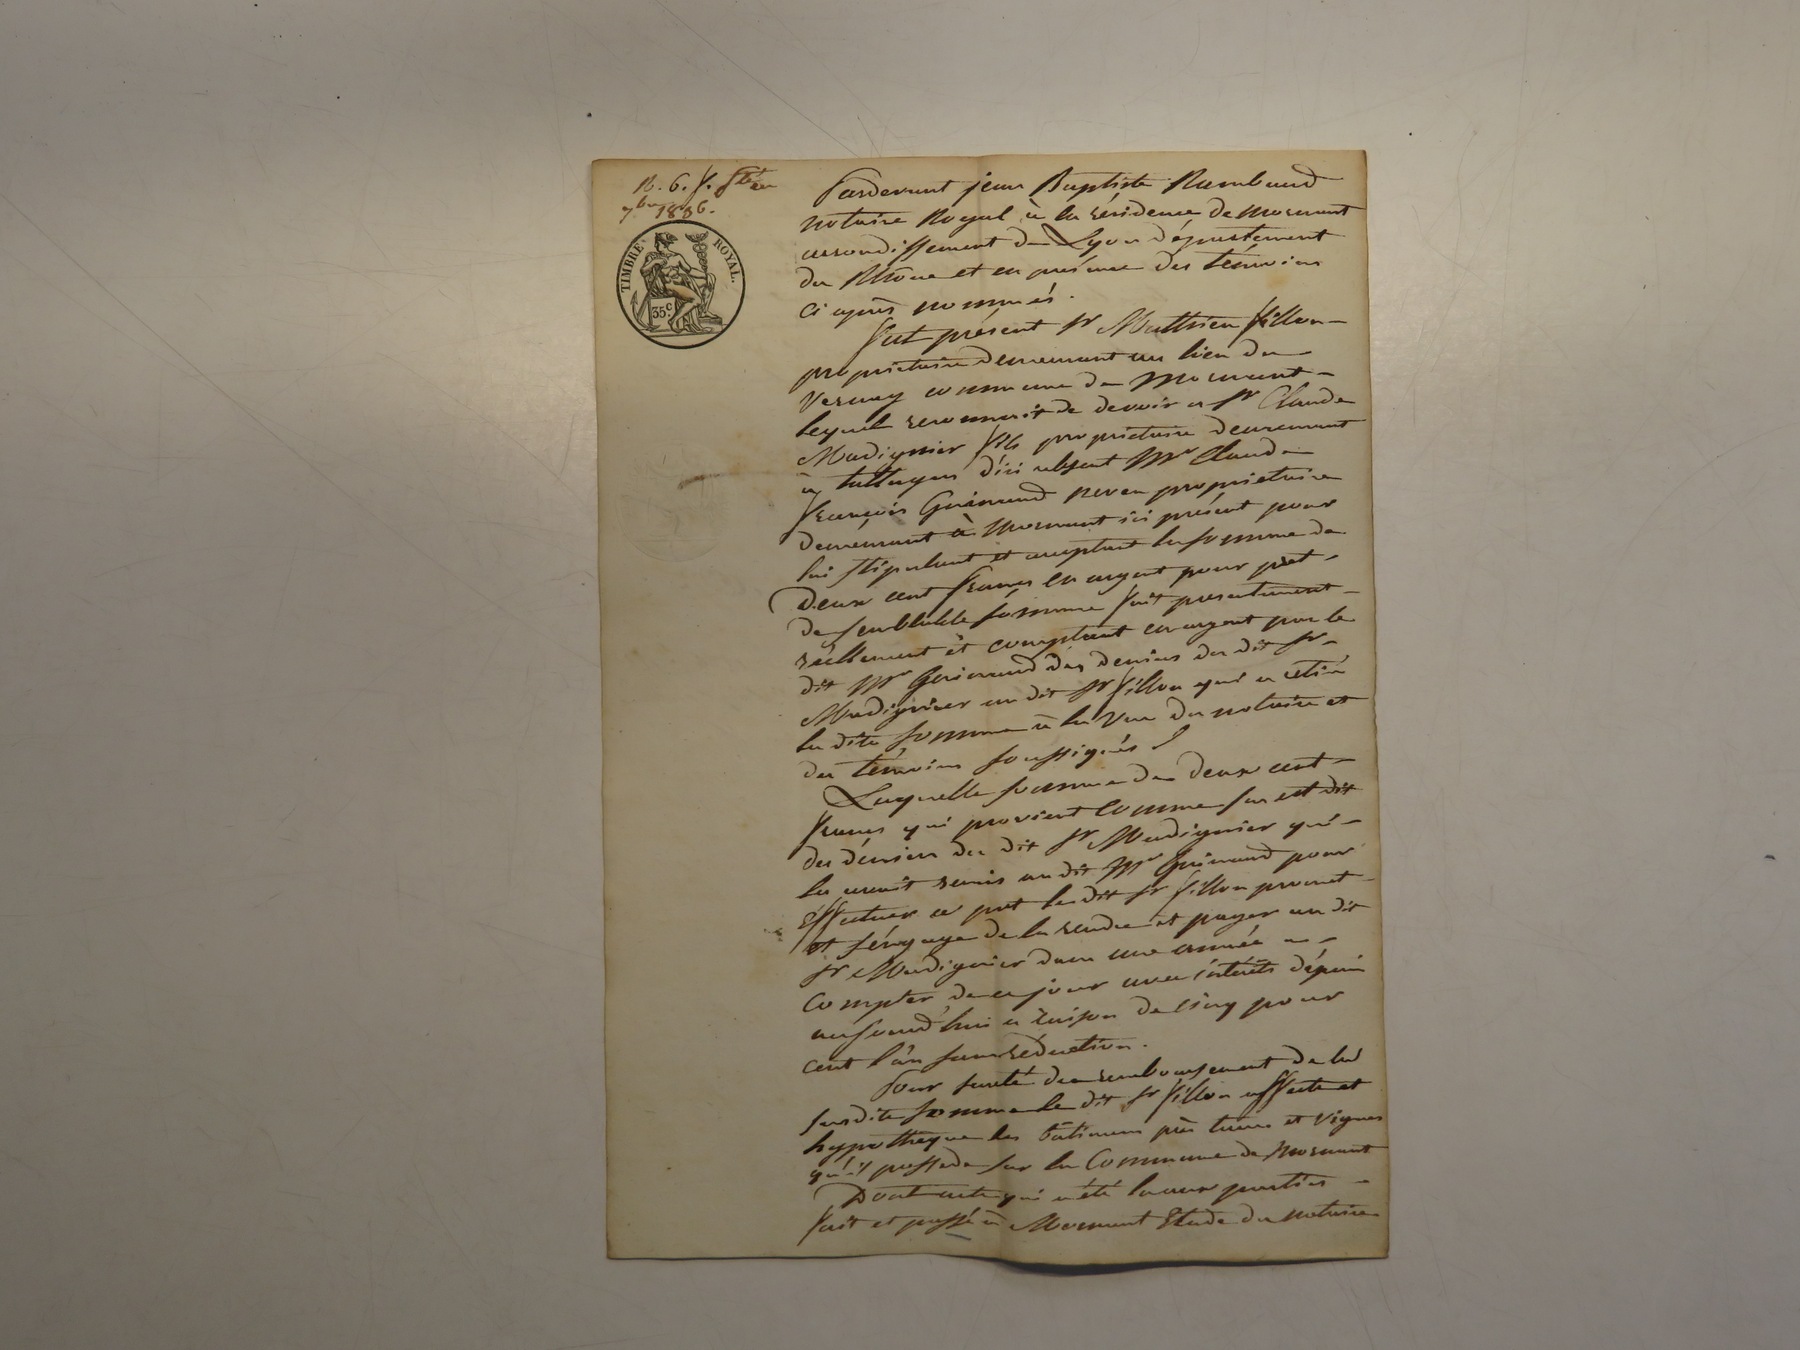 7bre 1836.
TIMBRE ROYAL.
35c.
Pardevant jean Baptiste Rambaud
notaire Royal à la résidence de mornant
arrondissement de Lyon département
du Rhône et en présence des témoins
ci après nommés.
fut présent sr Matthieu fillon
propriétaire demeurant au lieu du
Verney commune de mornant
lequel reconnait de devoir a sr Claude
Madignier fils propriétaire demeurant
à d'ici absent Mr Claude
françois Guérinaud neveu propriétaire
demeurant à mornant ici présent pour
lui stipulant et acceptant la somme de
deux cent francs en argent pour prêt
de semblable somme fait presentement
réellement et comptant en argent par le
dit Mr Guérinaud des deniers du dit sr
Madignier au dit sr fillon qui a retiré
la dite somme à la vue du notaire et
des témoins soussignés
Laquelle somme de deux cent
francs qui provient comme sus est dit
des déniers du dit sr Madignier qui
les avait remis au dit Mr Guérinaud pour
éffectuer ce pret le dit sr fillon promet
et s'éngage de la rendre et payer au dit
sr Madignier dans une année a
compter de ce jour avec intérêts dépuis
aujourd'hui a raison de cinq pour
cent l'an sans réduction.
Pour sureté du remboursement de la
susdite somme le dit sr fillon affecte et
hypothèque les bâtimens près terres et vignes
qu'il possede sur la Commune de Mornant
Dont acte qui a été lu aux parties
fait et passé à Mornant Etude du notaire